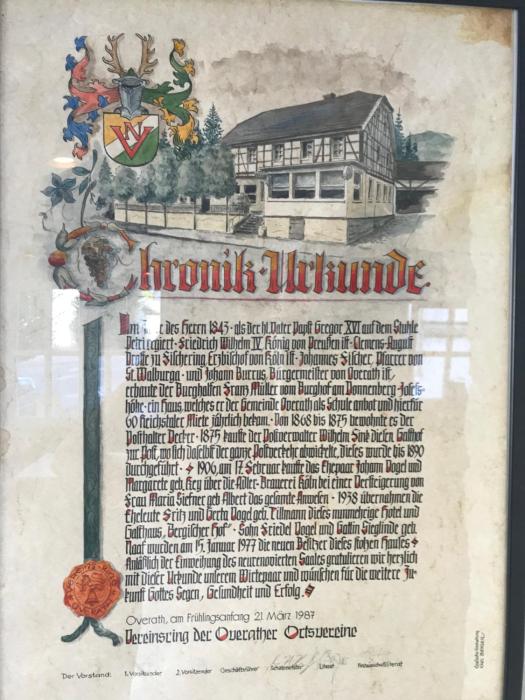 Chronik-Urkunde
Im des Herrn 1843 · als der hl. Vater Papst Gregor XVI auf dem Stuhle
Petri regiert · Friedrich Wilhelm IV. König von Preußen ist · Clemens-August
Droste zu Vischering Erzbischof von Köln ist · Johannes Fischer, Pfarrer von
St. Walburga · und Johann Burrus, Bürgermeister von Overath ist,
erbaute der Burghalfen Franz Müller vom Burghof am Donnenberg-Josefs-
höhe · ein Haus welches er der Gemeinde Overath als Schule anbot und hierfür
60 Reichstaler Miete jährlich bekam · Von 1868 bis 1875 bewohnte es der
Posthalter Decker · 1875 kaufte der Postverwalter Wilhelm Fink diesen Gasthof
zur Post, wo sich daselbst der ganze Postverkehr abwickelte, dieses wurde bis 1890
durchgeführt · 1906, am 17. Februar kaufte das Ehepaar Johann Vogel und
Margarete geb. Frey über die Adler-Brauerei Köln bei einer Versteigerung von
Frau Maria Siefner geb. Albert das gesamte Anwesen · 1938 übernahmen die
Eheleute Fritz und Berta Vogel geb. Tillmann dieses nunmehrige Hotel und
Gasthaus „Bergischer Hof" · Sohn Friedel Vogel und Gattin Sieglinde geb.
Naaf wurden am 15. Januar 1977 die neuen Besitzer dieses stolzen Hauses
Anläßlich der Einweihung des neurenovierten Saales gratulieren wir herzlich
mit dieser Urkunde unserem Wirtepaar und wünschen für die weitere Zu-
kunft Gottes Segen, Gesundheit und Erfolg.
Overath, am Frühlingsanfang 21. März 1987
Vereinsring der Overather Ortsvereine
Der Vorstand: 1. Vorsitzender 2. Vorsitzender Geschäftsführer Schatzmeister Literat